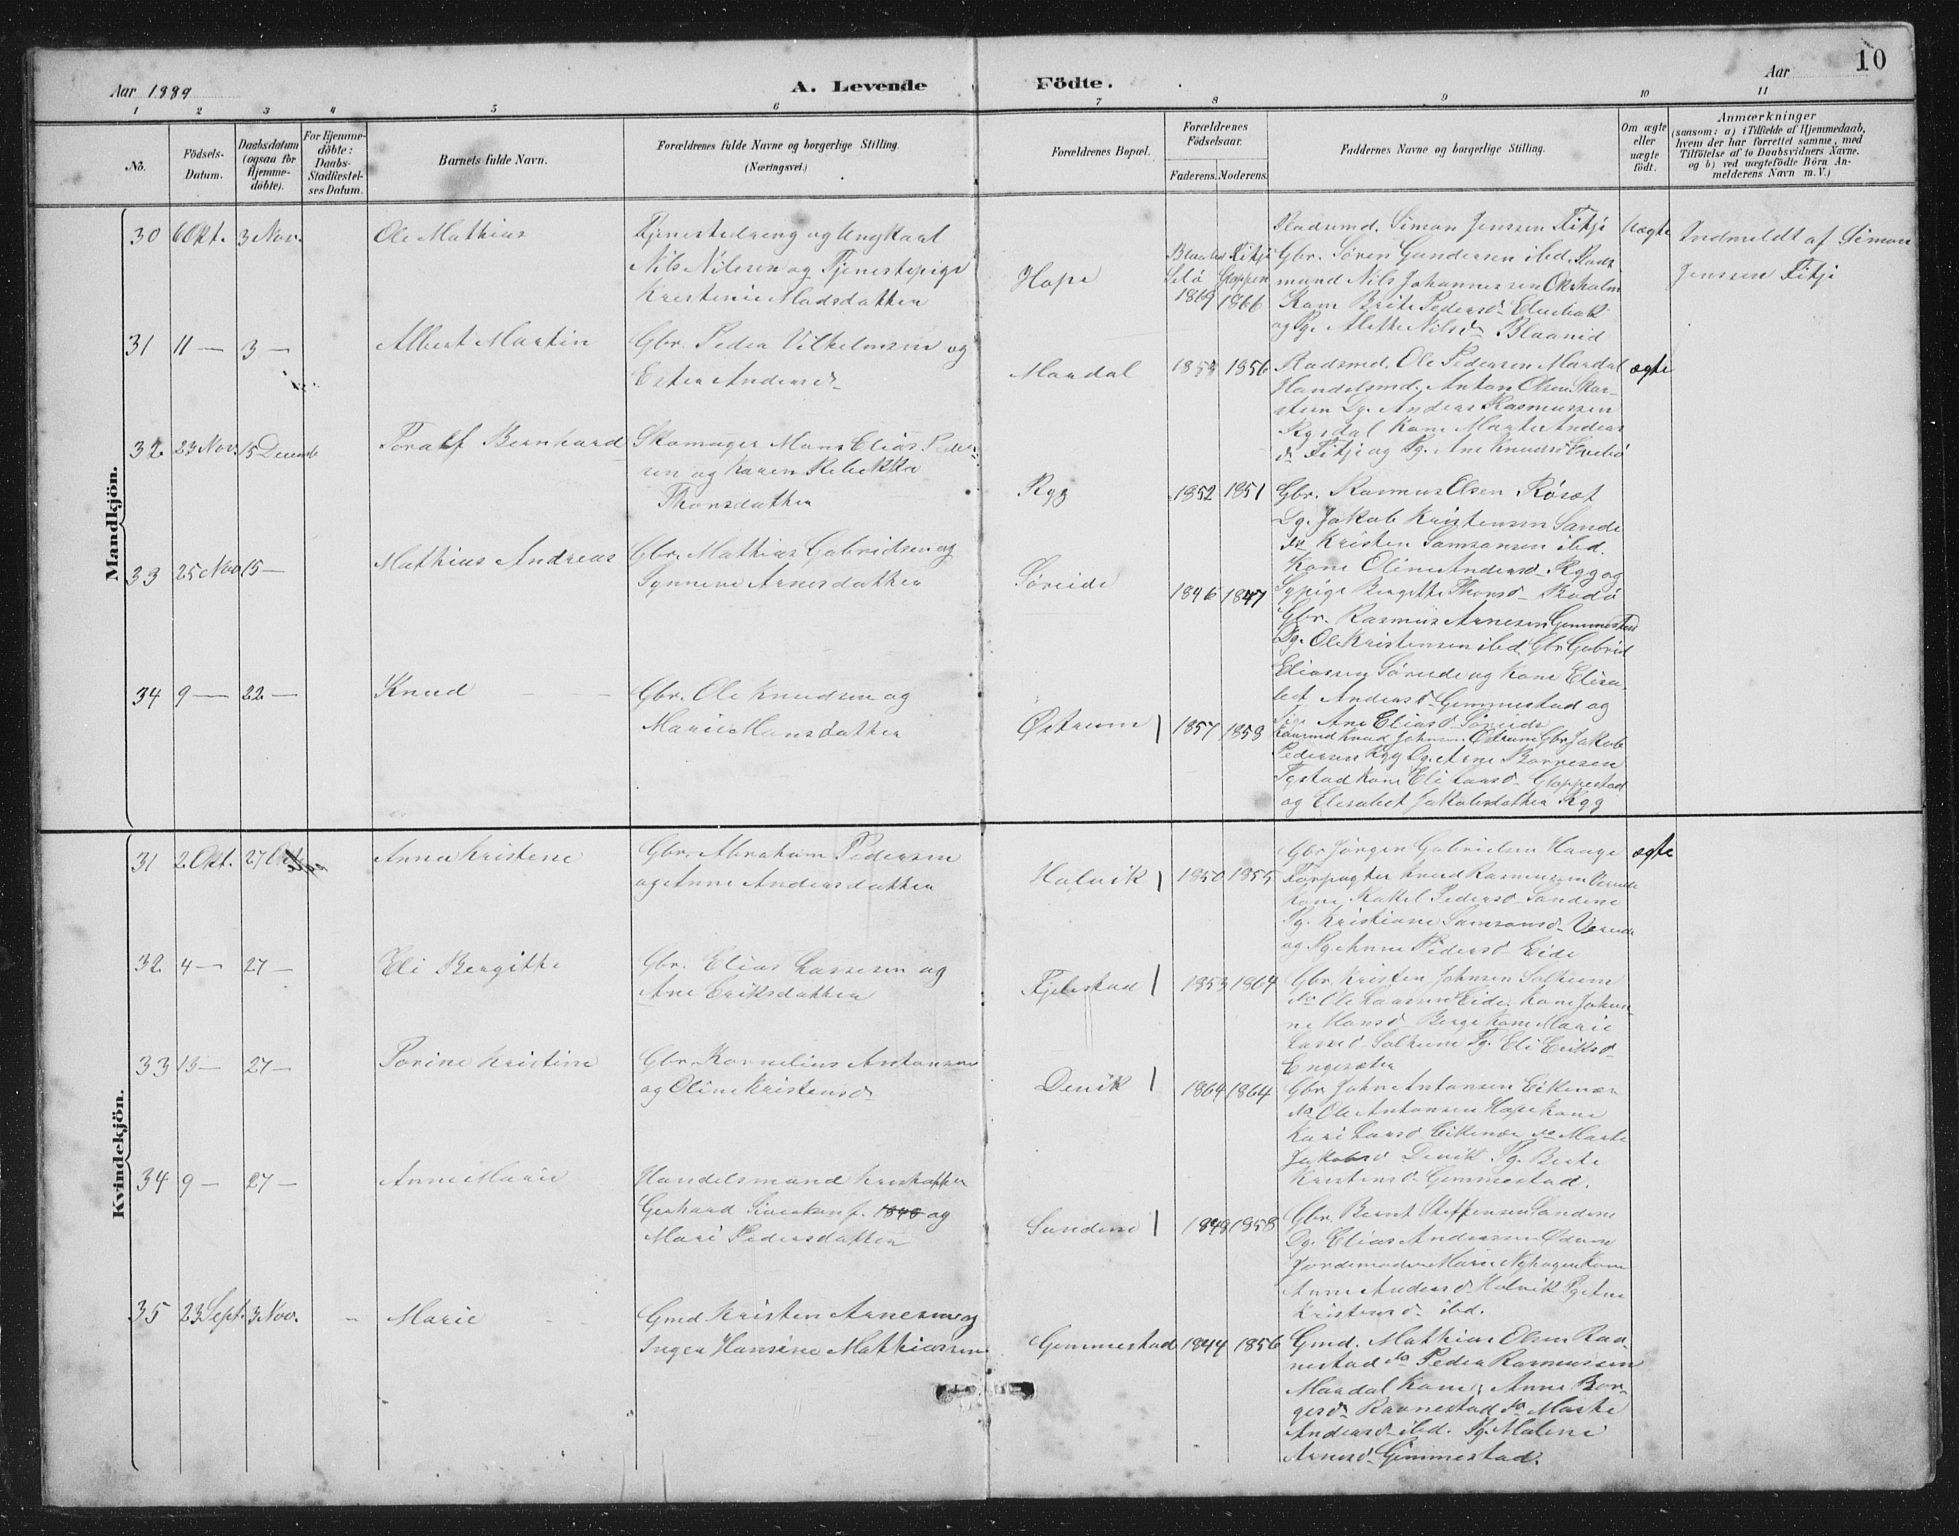 10
Aar 1889
A. Levende Födte.
Aar
1 2 3 4 5 6 7 8 9 10 11
No.
Födsels-Datum.
Daabsdatum (ogsaa for Hjemme-döbte).
For Hjemme-döbte: Daabs-Stadfæstel-ses Datum.
Barnets fulde Navn.
Forældrenes fulde Navne og borgerlige Stilling.
(Næringsvei.)
Forældrenes Bopæl.
Forældrenes Födselsaar.
Faderens. Moderens.
Faddernes Navne og borgerlige Stilling.
Om ægte eller uægte födt.
Anmærkninger
(saasom: a) i Tilfælde af Hjemmedaab, hvem der har forrettet samme, med Tilföielse af to Daabsvidners Navne. og b) ved uægtefödte Börn An-melderens Navn m. V.)
Mandkjön.
30 6 Okt. 3 Nov. Ole Mathias
Tjenestedreng og Ungkarl
Nils Nilsen og Tjenestepige
Kristense Madsdatter
Hope
1869 1866
Gaardsmd. Simon Jenssen Fitje
Gbr. Sören Gundersen ibd.
mand Nils Johannessen
og Pg. Alette Nilsd. Blaanid
Uægte
Indmeldt af Simon
Jenssen Fitje
31 11 — 3 — Albert Martin
Gbr. Peder Vilhelmsen og
Ester Andersd.
Mardal
1856
Ole Pedersen Mardal
Handelsmd. Anton Olsen Skar-
stein Dg. Anders Rasmussen
Rygsdal Kone Marte Anders
d. Fitje og Pg. Ane Knudsd.
ægte
32 23 Nov. 15 Decemb Toralf Bernhard
Skomager Mons Elias Peder-
sen og Karen Rebekka
Thomsdatter
Ryg
1852 1851
Gbr. Rasmus Olsen Rösæt
Dg. Jakob Kristensen Sande
do Kristen Samsonsen ibd.
Kone Oline Andersd. Ryg og
33 25 Nov 15 — Mathias Andreas
Gbr. Mathias Gabrielsen og
Synneve Arnesdatter
Söreide
1846 1847
Gbr. Rasmus Arnesen Gimmestad
Dg. Ole Kristensen ibd. Gbr. Gabriel
Eliassen Söreide og Kone Elisa-
bet Andersd. Gimmestad og
Pg. Ane Eliasd. Söreide
34 9 — 22 — Knud
Gbr. Ole Knudsen og
Marie Monsdatter
Østrem
1857 1858
Kaarmd Knud Johnsen Østrem Gbr. Jakob
Pedersen Ryg Dg. Arne
Kone Eli Larsd.
og Elisabet Jakobsdatter Ryg
Kvindekjön.
31 2 Okt. 27 Okt. Anna Kristene
Gbr. Abraham Pedersen
og Anne Andersdatter
Holvik
1850 1855
Gbr Jörgen Gabrielsen Hauge
Forpagter Knud Rasmussen Vereide
Kone Rakel Pedersd. Sandene
Pg. Kristiane Samsonsd. Vereide
og Pg. Anne Pedersd. Eide
ægte
32 4 — 27 — Eli Bergitte
Gbr. Elias Lassesen og
Ane Eriksdatter
Fjelestad
1853 1864
Gbr. Kristen Johnsen Solheim
do Ole Larssen Eide. Kone Johan-
ne Hansd. Berge Kone Marie
Lassesd. Solheim Pg. Eli Eriksd.
Engesæter
33 13 — 27 — Torine Kristine
Gbr. Kornelius Antonsen
og Oline Kristensd.
Devik
1864 1864
Gbr. John Antonsen Eikenæs
do Ole Antonsen Hope Kone
Kari Larsd. Eikenæs do Marte
Jakobsd. Devik Pg. Berte
Kristensd. Gimmestad.
34 9 — 27 — Anne Marie
Handelsmand Kristoffer
Gerhard Sivertsen f. 1848 og
Mari Pedersdatter
Sandene
1848 1858
Gbr. Bernt Steffensen Sandene
Dg. Elias Anderssen
Jordemoder Marie Nyhagen Kone
Anne Andersd. Holvik Pg. Ane
Kristensd. ibd.
35 23 Sept. 3 Nov. Marie
Gmd Kristen Arnesen og
Inger Hansine Mathiassen
Gimmestad
1844 1856
Gmd. Mathias Olsen Rau-
nestad do Peder Rasmussen
Mardal Kone, Anne Bør-
gesd. Raunestad do Marte
Andersd. ibd. Pg. Maline
Arnesd. Gimmestad.